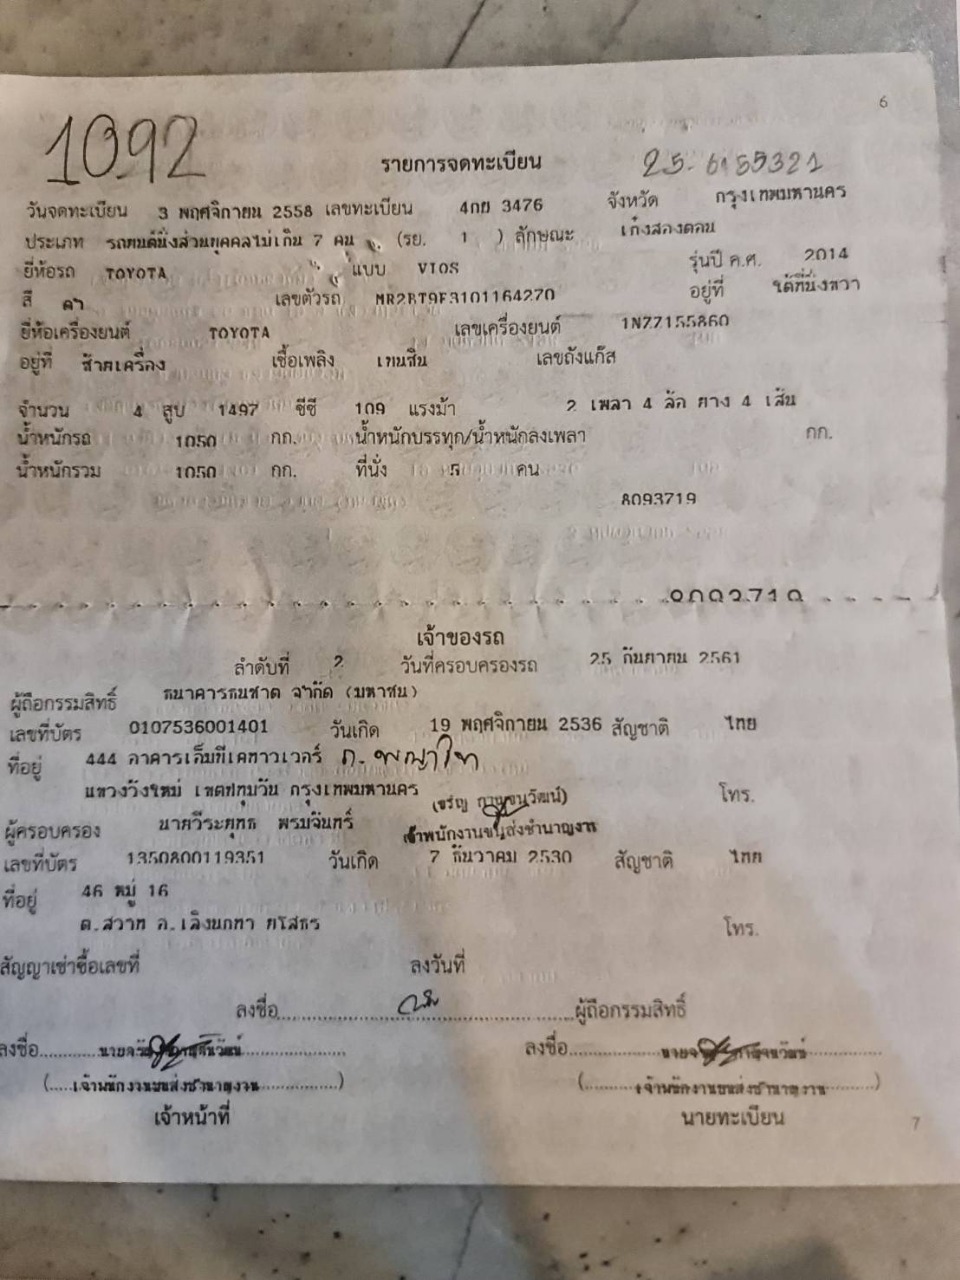 6
1092
รายการจดทะเบียน 25-6155321
วันจดทะเบียน 3 พฤศจิกายน 2558 เลขทะเบียน 4กย 3476 จังหวัด กรุงเทพมหานคร
ประเภท รถยนต์นั่งส่วนบุคคลไม่เกิน 7 คน (รย. 1 ) ลักษณะ เก๋งสองตอน
ยี่ห้อรถ TOYOTA แบบ VIOS รุ่นปี ค.ศ. 2014
สี ดำ เลขตัวรถ MR2BT9F3101164270 อยู่ที่ ใต้ที่นั่งขวา
ยี่ห้อเครื่องยนต์ TOYOTA เลขเครื่องยนต์ 1NZZ155860
อยู่ที่ ซ้ายเครื่อง เชื้อเพลิง เบนซิน เลขถังแก๊ส
จำนวน 4 สูบ 1497 ซีซี 109 แรงม้า 2 เพลา 4 ล้อ ยาง 4 เส้น
น้ำหนักรถ 1050 กก. น้ำหนักบรรทุก/น้ำหนักลงเพลา กก.
น้ำหนักรวม 1050 กก. ที่นั่ง 5 คน
8093719
เจ้าของรถ
ลำดับที่ 2 วันที่ครอบครองรถ 25 กันยายน 2561
ผู้ถือกรรมสิทธิ์ ธนาคารธนชาต จำกัด (มหาชน)
เลขที่บัตร 0107536001401 วันเกิด 19 พฤศจิกายน 2536 สัญชาติ ไทย
ที่อยู่ 444 อาคารเอ็มบีเคทาวเวอร์ ถ.พญาไท
แขวงวังใหม่ เขตปทุมวัน กรุงเทพมหานคร โทร.
(จรัญ กาญจนวัฒน์)
ผู้ครอบครอง นายวีระยุทธ พรมจันทร์ เจ้าพนักงานขนส่งชำนาญงาน
เลขที่บัตร 1350800119351 วันเกิด 7 ธันวาคม 2530 สัญชาติ ไทย
ที่อยู่ 46 หมู่ 16
ต.สวาท อ.เลิงนกทา ยโสธร โทร.
สัญญาเช่าซื้อเลขที่ ลงวันที่
ลงชื่อ ผู้ถือกรรมสิทธิ์
ลงชื่อ ลงชื่อ
(เจ้าพนักงานขนส่งชำนาญงาน) (เจ้าพนักงานขนส่งชำนาญงาน)
เจ้าหน้าที่ นายทะเบียน
7